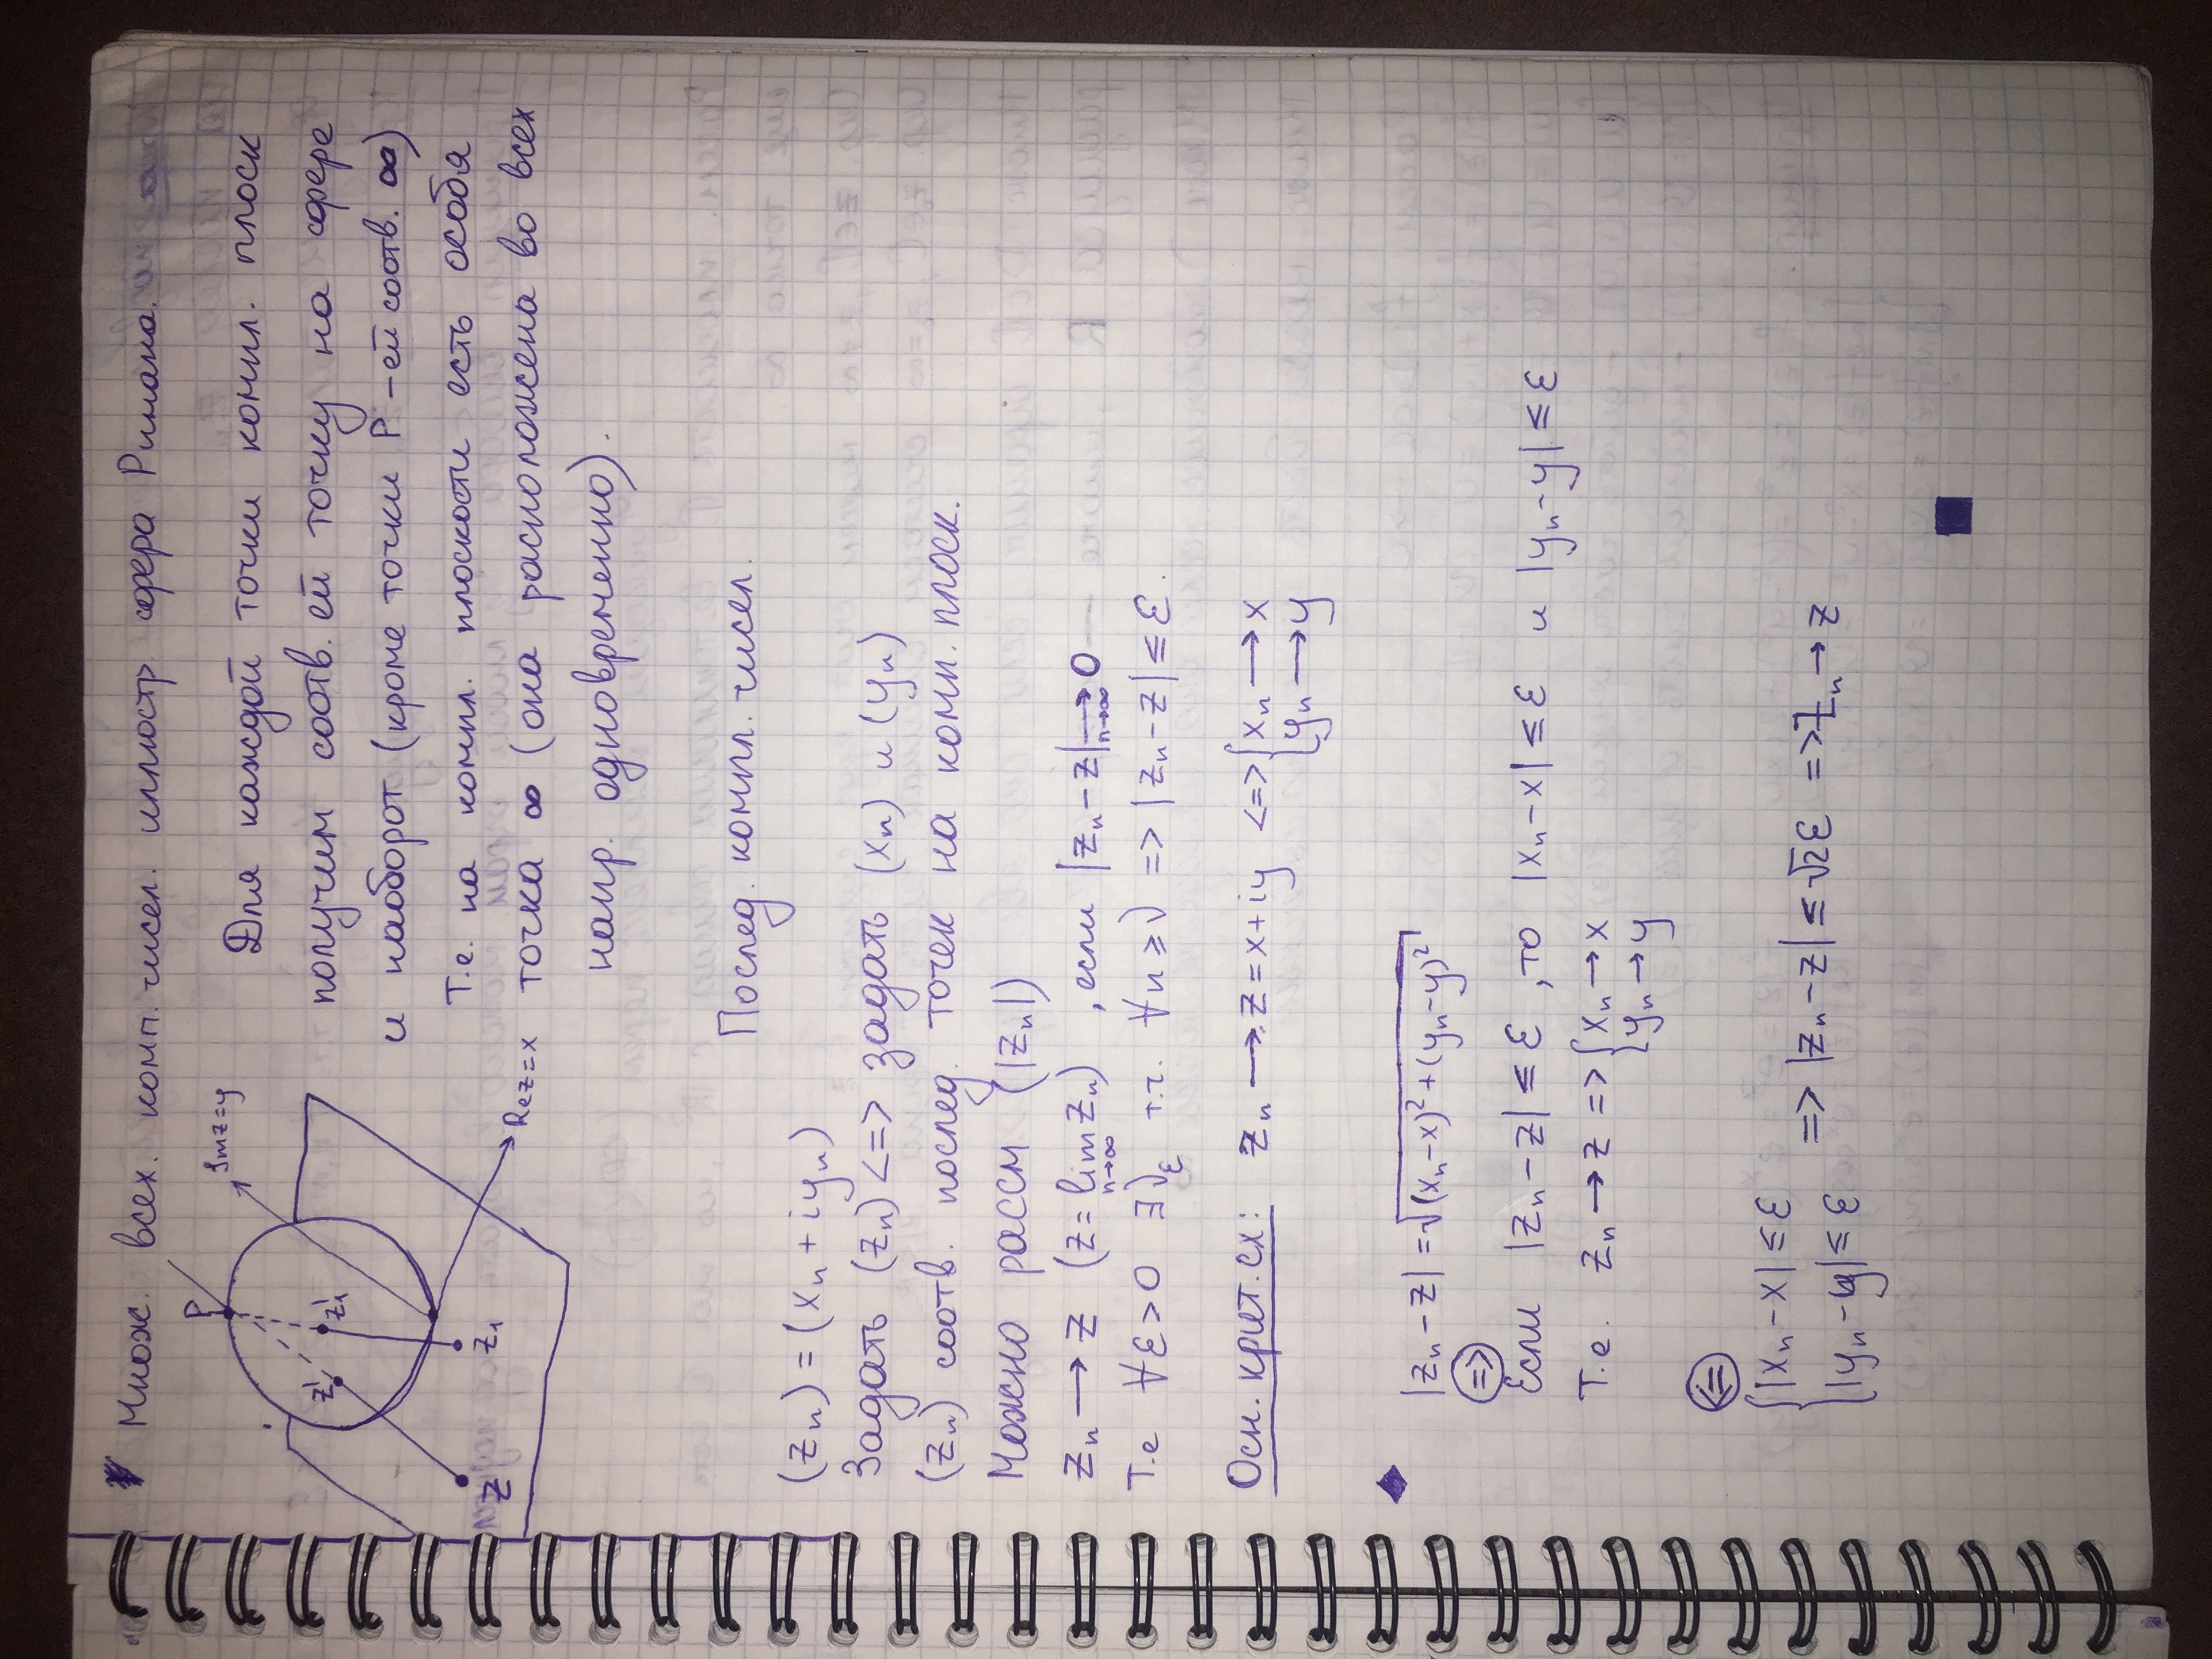 Множ. всех. комп. чисел. иллюстр. сфера Римана.
P
Imz=y
z'
z'₁
z
z₁
Rez=x
Для каждой точки компл. плоск
получим соотв. ей точку на сфере
и наоборот (кроме точки P – ей соотв. ∞)
Т.е. на компл. плоскости есть особя
точка ∞ (она расположена во всех
напр. одновременно).
Послед. компл. чисел.
(zₙ) = (xₙ + iyₙ)
Задать (zₙ) <=> задать (xₙ) и (yₙ)
(zₙ) соотв. послед. точек на комп. плоск.
Можно рассм (|zₙ|)
zₙ → z (z = lim zₙ), если |zₙ – z| → 0
n→∞ n→∞
Т.е ∀ε > 0 ∃ν_ε т.ч. ∀n ≥ ν => |zₙ – z| ≤ ε.
Осн. крит. сх: zₙ → z = x + iy <=> { xₙ → x
yₙ → y
|zₙ – z| = √((xₙ – x)² + (yₙ – y)²)
=>
Если |zₙ – z| ≤ ε, то |xₙ – x| ≤ ε и |yₙ – y| ≤ ε
Т.е. zₙ → z => { xₙ → x
yₙ → y
<=
{ |xₙ – x| ≤ ε
|yₙ – y| ≤ ε => |zₙ – z| ≤ √2ε => zₙ → z